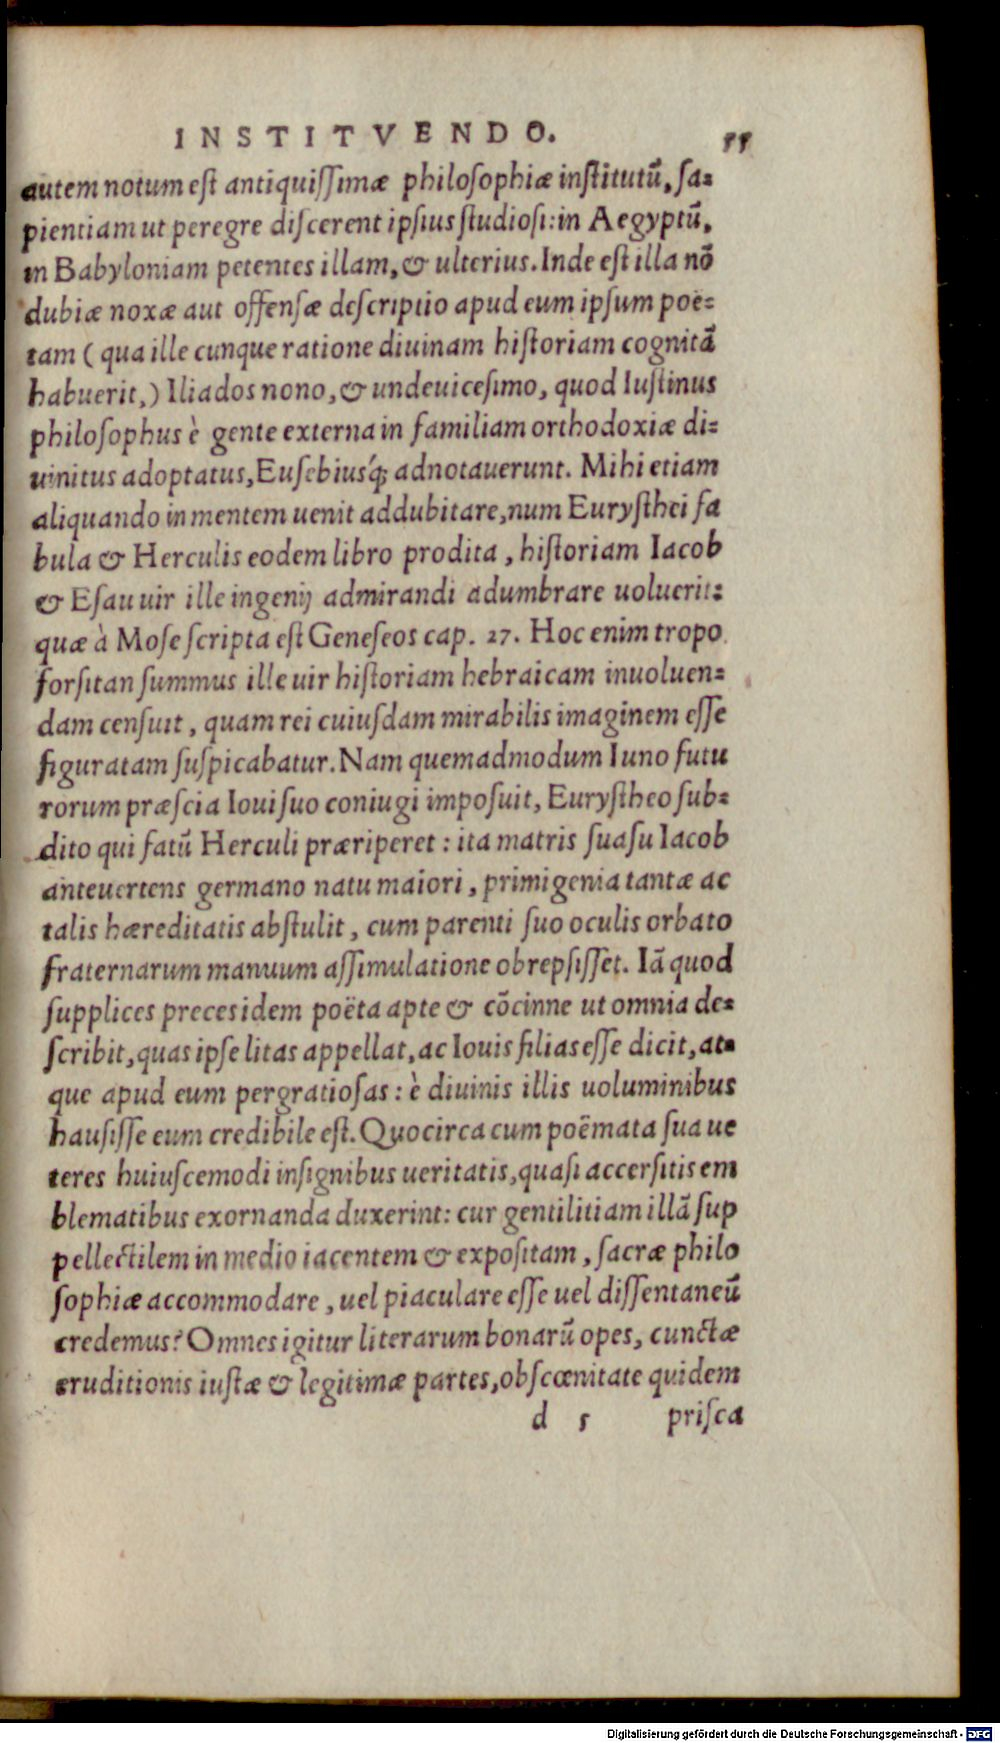 INSTITVENDO. 55
autem notum est antiquissimæ philosophiæ institutũ, sa-
pientiam ut peregre discerent ipsius studiosi: in Aegyptũ,
in Babyloniam petentes illam, & ulterius. Inde est illa nõ
dubiæ noxæ aut offensæ descriptio apud eum ipsum poe-
tam ( qua ille cunque ratione diuinam historiam cognitã
habuerit,) Iliados nono, & undeuicesimo, quod Iustinus
philosophus è gente externa in familiam orthodoxiæ di-
uinitus adoptatus, Eusebiusq́; adnotauerunt. Mihi etiam
aliquando in mentem uenit addubitare, num Eurysthei fa
bula & Herculis eodem libro prodita, historiam Iacob
& Esau uir ille ingenij admirandi adumbrare uoluerit:
quæ à Mose scripta est Geneseos cap. 27. Hoc enim tropo
forsitan summus ille uir historiam hebraicam inuoluen-
dam censuit, quam rei cuiusdam mirabilis imaginem esse
figuratam suspicabatur. Nam quemadmodum Iuno futu
rorum præscia Ioui suo coniugi imposuit, Eurystheo sub-
dito qui fatũ Herculi præriperet: ita matris suasu Iacob
anteuertens germano natu maiori, primigenia tantæ ac
talis hæreditatis abstulit, cum parenti suo oculis orbato
fraternarum manuum assimulatione obrepsisset. Iã quod
supplices preces idem poëta apte & cõcinne ut omnia de-
scribit, quas ipse litas appellat, ac Iouis filias esse dicit, at-
que apud eum pergratiosas: è diuinis illis uoluminibus
hausisse eum credibile est. Quocirca cum poëmata sua ue
teres huiuscemodi insignibus ueritatis, quasi accersitis em
blematibus exornanda duxerint: cur gentilitiam illã sup
pellectilem in medio iacentem & expositam, sacræ philo
sophiæ accommodare, uel piaculare esse uel dissentaneũ
credemus? Omnes igitur literarum bonarũ opes, cunctæ
eruditionis iustæ & legitimæ partes, obscœnitate quidem
d 5 prisca
Digitalisierung gefördert durch die Deutsche Forschungsgemeinschaft - DFG